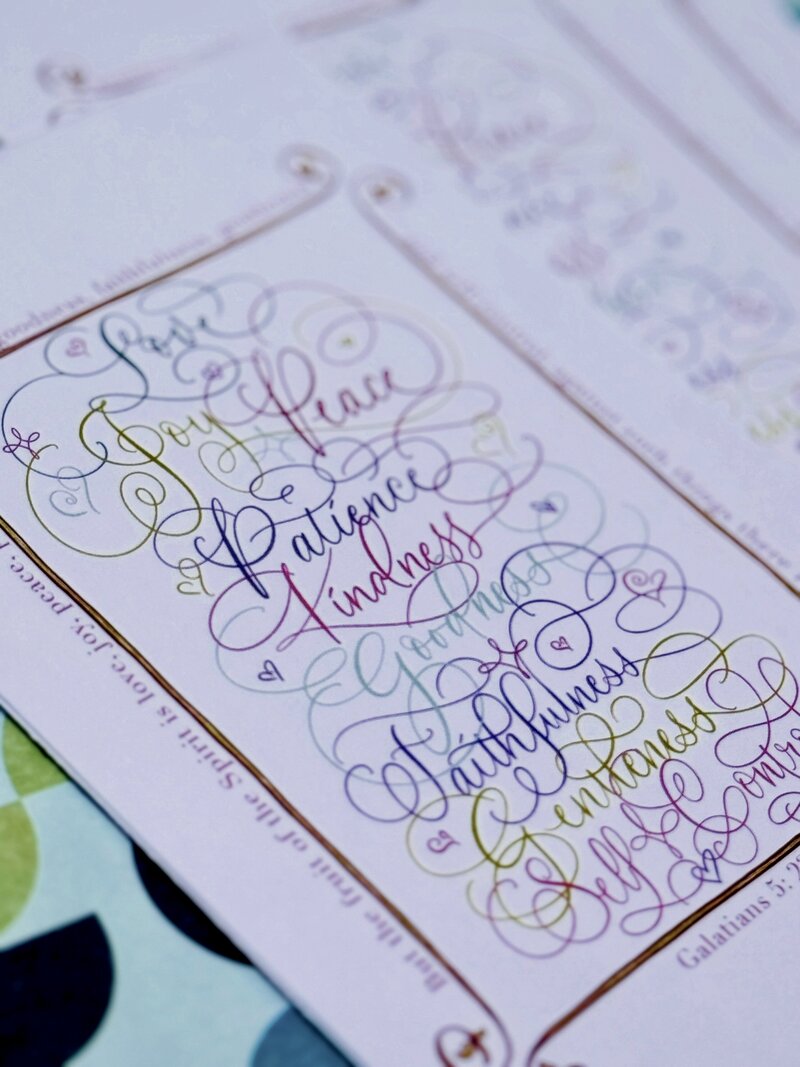 Love
Joy Peace
Patience
Kindness
Goodness
Faithfulness
Gentleness
Self Contro
But the fruit of the Spirit is love, joy, peace,
goodness, faithfulness,
Galatians 5: 2